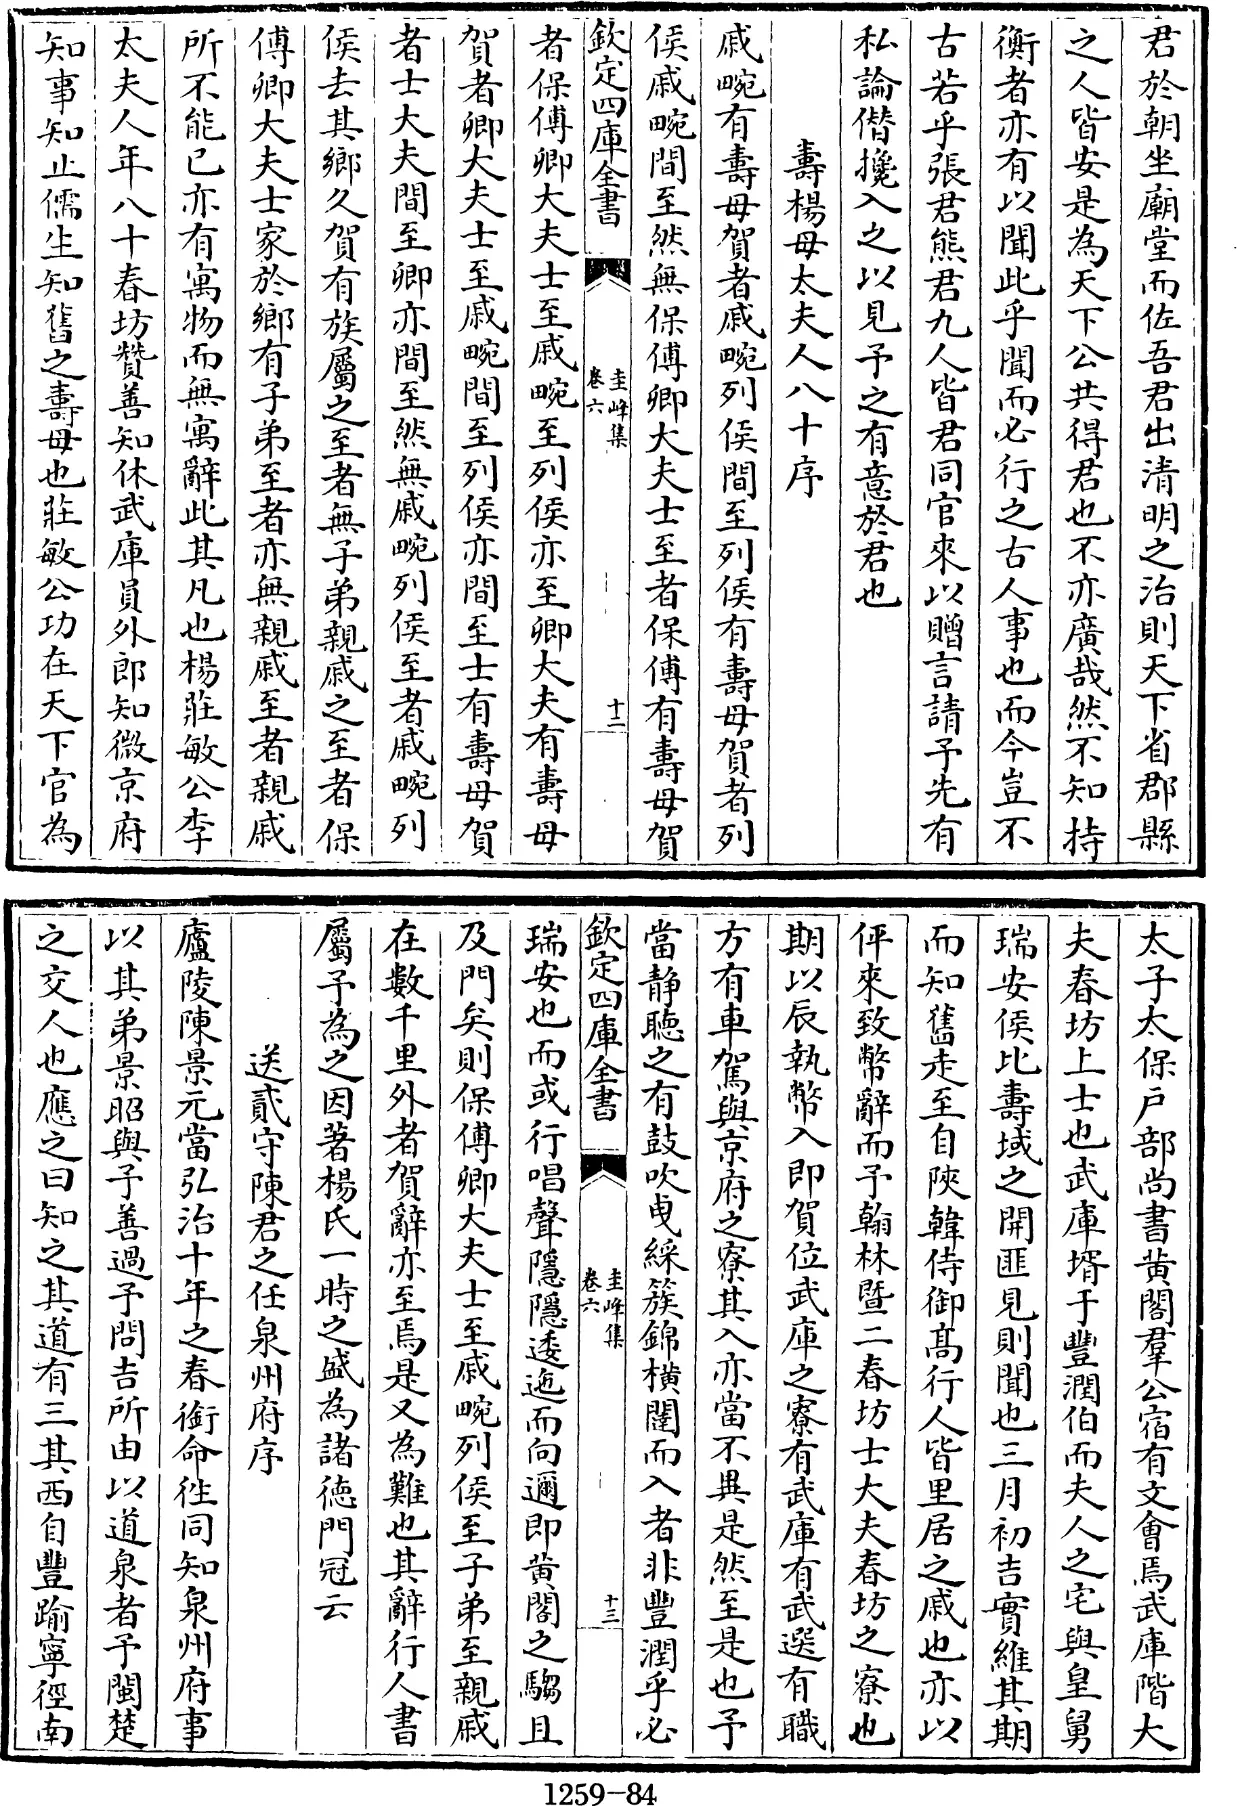 君於朝坐廟堂而佐吾君出清明之治則天下省郡縣
之人皆安是為天下公共得君也不亦廣哉然不知持
衡者亦有以聞此乎聞而必行之古人事也而今豈不
古若乎張君熊君九人皆君同官來以贈言請予先有
私論僭攙入之以見予之有意於君也
壽楊母太夫人八十序
戚畹有壽母賀者戚畹列侯間至列侯有壽母賀者列
侯戚畹間至然無保傅卿大夫士至者保傅有壽母賀
欽定四庫全書
圭峰集
卷六
十二
者保傅卿大夫士至戚畹至列侯亦至卿大夫有壽母
賀者卿大夫士至戚畹間至列侯亦間至士有壽母賀
者士大夫間至卿亦間至然無戚畹列侯至者戚畹列
侯去其鄉久賀有族屬之至者無子弟親戚之至者保
傅卿大夫士家於鄉有子弟至者亦無親戚至者親戚
所不能已亦有寓物而無寓辭此其凡也楊莊敏公李
太夫人年八十春坊贊善知休武庫員外郎知微京府
知事知止儒生知舊之壽母也莊敏公功在天下官為
太子太保戶部尚書黄閣羣公宿有文會焉武庫階大
夫春坊上士也武庫壻于豐潤伯而夫人之宅與皇舅
瑞安侯比壽域之開匪見則聞也三月初吉實維其期
而知舊走至自陜韓侍御髙行人皆里居之戚也亦以
伻來致幣辭而予翰林暨二春坊士大夫春坊之寮也
期以辰執幣入即賀位武庫之寮有武庫有武選有職
方有車駕與京府之寮其入亦當不異是然至是也予
當静聽之有鼓吹曵綵簇錦横闥而入者非豐潤乎必
欽定四庫全書
圭峰集
卷六
十三
瑞安也而或行唱聲隱隱逶迤而向邇即黄閣之騶且
及門矣則保傅卿大夫士至戚畹列侯至子弟至親戚
在數千里外者賀辭亦至焉是又為難也其辭行人書
屬予為之因著楊氏一時之盛為諸徳門冠云
送貳守陳君之任泉州府序
廬陵陳景元當弘治十年之春銜命徃同知泉州府事
以其弟景昭與予善過予問吉所由以道泉者予閩楚
之交人也應之曰知之其道有三其西自豐踰寧徑南
1259-84